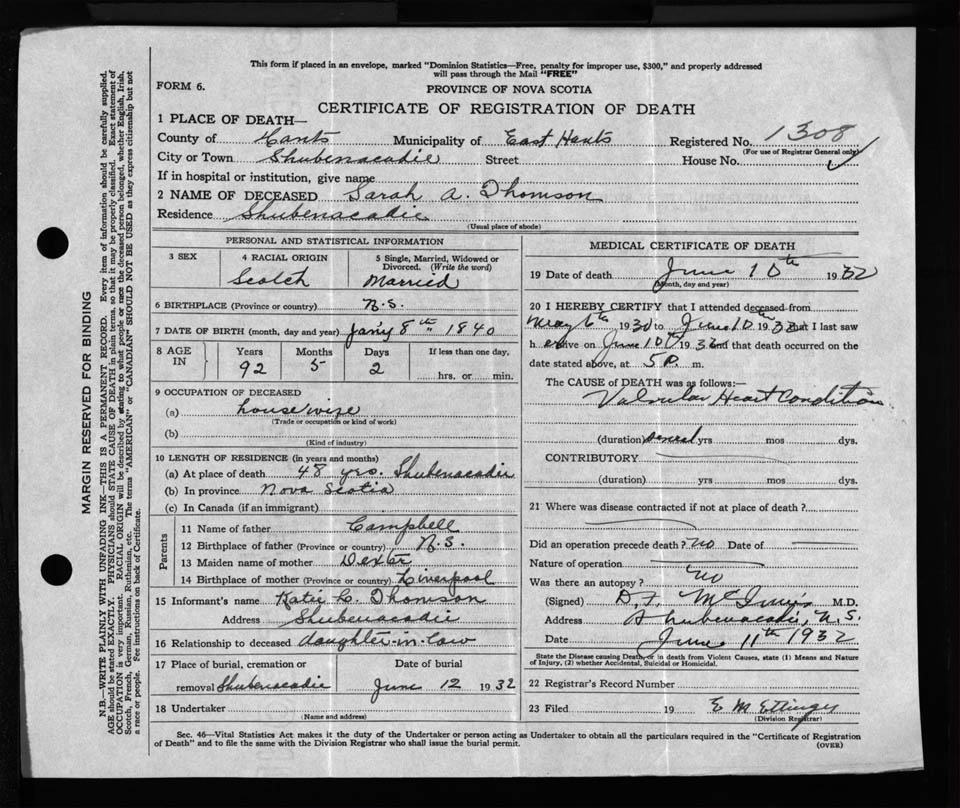 This form if placed in an envelope, marked "Dominion Statistics—Free, penalty for improper use, $300," and properly addressed
will pass through the Mail "FREE"
FORM 6.
PROVINCE OF NOVA SCOTIA
CERTIFICATE OF REGISTRATION OF DEATH
1 PLACE OF DEATH—
County of Hants Municipality of East Hants Registered No. 1308
(For use of Registrar General only)
City or Town Shubenacadie Street House No.
If in hospital or institution, give name
2 NAME OF DECEASED Sarah A. Thomson
Residence Shubenacadie
(Usual place of abode)
PERSONAL AND STATISTICAL INFORMATION
3 SEX 4 RACIAL ORIGIN 5 Single, Married, Widowed or
Divorced. (Write the word)
Scotch Married
6 BIRTHPLACE (Province or country) N.S.
7 DATE OF BIRTH (month, day and year) Jan'y 8th 1840
8 AGE IN Years Months Days If less than one day,
92 5 2 hrs. or min.
9 OCCUPATION OF DECEASED
(a) housewife
(Trade or occupation or kind of work)
(b)
(Kind of industry)
10 LENGTH OF RESIDENCE (in years and months)
(a) At place of death 48 yrs. Shubenacadie
(b) In province Nova Scotia
(c) In Canada (if an immigrant)
Parents
11 Name of father Campbell
12 Birthplace of father (Province or country) N.S.
13 Maiden name of mother Dexter
14 Birthplace of mother (Province or country) Liverpool
15 Informant's name Katie C. Thomson
Address Shubenacadie
16 Relationship to deceased daughter-in-law
17 Place of burial, cremation or Date of burial
removal Shubenacadie June 12 1932
18 Undertaker
(Name and address)
MEDICAL CERTIFICATE OF DEATH
19 Date of death June 10th 1932
(Month, day and year)
20 I HEREBY CERTIFY that I attended deceased from
May 6th 1930 to June 10th 1932 that I last saw
her alive on June 10th 1932 and that death occurred on the
date stated above, at 5 p. m.
The CAUSE of DEATH was as follows:—
Valvular Heart Condition
(duration) several yrs mos dys.
CONTRIBUTORY
(duration) yrs mos dys.
21 Where was disease contracted if not at place of death?
Did an operation precede death? no Date of
Nature of operation
Was there an autopsy? no
(Signed) D. F. McInnis M.D.
Address Shubenacadie, N.S.
Date June 11th 1932
State the Disease causing Death, or in death from Violent Causes, state (1) Means and Nature
of Injury, (2) whether Accidental, Suicidal or Homicidal.
22 Registrar's Record Number
23 Filed 19 E M Ettinger
(Division Registrar)
Sec. 46—Vital Statistics Act makes it the duty of the Undertaker or person acting as Undertaker to obtain all the particulars required in the "Certificate of Registration
of Death" and to file the same with the Division Registrar who shall issue the burial permit. (OVER)
MARGIN RESERVED FOR BINDING
N.B.—WRITE PLAINLY WITH UNFADING INK—THIS IS A PERMANENT RECORD. Every item of information should be carefully supplied.
AGE should be stated EXACTLY. PHYSICIANS should STATE CAUSE OF DEATH in plain terms, so that it may be properly classified. Exact statement of
OCCUPATION is very important. RACIAL ORIGIN will be described by stating to what people or race the deceased person belonged, whether English, Irish,
Scotch, French, German, Russian, Ruthenian, etc. The terms "AMERICAN" or "CANADIAN" SHOULD NOT BE USED as they express citizenship but not
a race or people. See instructions on back of Certificate.